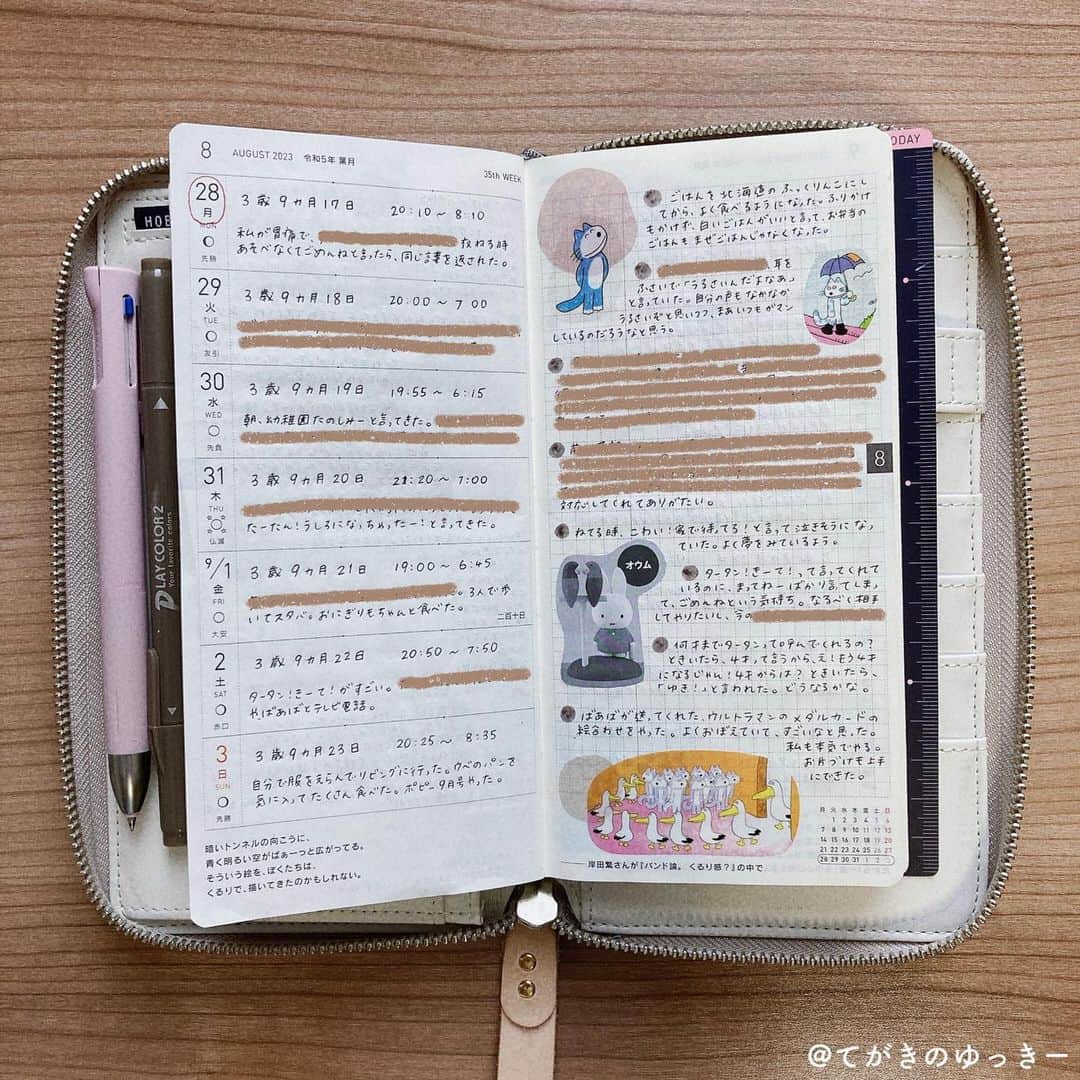 8 AUGUST 2023 令和5年 葉月
35th WEEK
28 月 MON 先勝
3歳9ヵ月17日 20:10〜8:10
私が胃痛で、
数ねる時
あそべなくてごめんねと言ったら、同じ言葉を返された。
29 火 TUE 友引
3歳9ヵ月18日 20:00〜7:00
30 水 WED 先負
3歳9ヵ月19日 19:55〜6:15
朝、幼稚園たのしみーと言ってきた。
31 木 THU 仏滅
3歳9ヵ月20日 21:20〜7:00
たーたん!うしろになっちゃったー!と言ってきた。
9/1 金 FRI 大安
3歳9ヵ月21日 19:00〜6:45
。3人で歩
いてスタバ。おにぎりもちゃんと食べた。
二百十日
2 土 SAT 赤口
3歳9ヵ月22日 20:50〜7:50
タータン!きーて!がすごい。
やばあばとテレビ電話。
3 日 SUN 先勝
3歳9ヵ月23日 20:25〜8:35
自分で服をえらんでリビングに行った。ウベのパンを
気に入ってたくさん食べた。ポピー9月号やった。
暗いトンネルの向こうに、
青く明るい空がばぁーっと広がってる。
そういう絵を、ぼくたちは、
くるりで、描いてきたのかもしれない。
ごはんを北海道のふっくりんこにし
てから、よく食べるようになった。ふりかけ
もかけず、白いごはんがいいと言って、お弁当の
ごはんもまぜごはんじゃなくなった。
、耳を
ふさいで「うるさいんだよなあ」
と言っていた。自分の声もなかなか
うるさいぞと思いつつ、まあいつもがマン
しているのだろうなと思う。
対応してくれてありがたい。
ねてる時、こわい!家で待ってる!と言って泣きそうになっ
ていた。よく夢をみているよう。
オウム
タータン!きーて!って言ってくれて
いるのに、まってねーばかり言てしまっ
て、ごめんねという気持ち。なるべく相手
してやりたいし、今の
何才までタータンって呼んでくれるの?
ときいたら、4才って言うから、え!もう4才
になるじゃん!4才からは?ときいたら、
「ゆき!」と言われた。どうなるかな。
ばあばが送ってくれた、ウルトラマンのメダルカードの
絵合わせをやった。よくおぼえていて、すごいなと思った。
私も本気でやる。
お片づけも上手
にできた。
8
月 火 水 木 金 土 日
1 2 3 4 5 6
7 8 9 10 11 12 13
14 15 16 17 18 19 20
21 22 23 24 25 26 27
28 29 30 31 1 2 3
岸田繁さんが『バンド論。 くるり感?』の中で
ODAY
HOB
PLAYCOLOR 2
Your favorite colors
@てがきのゆっきー